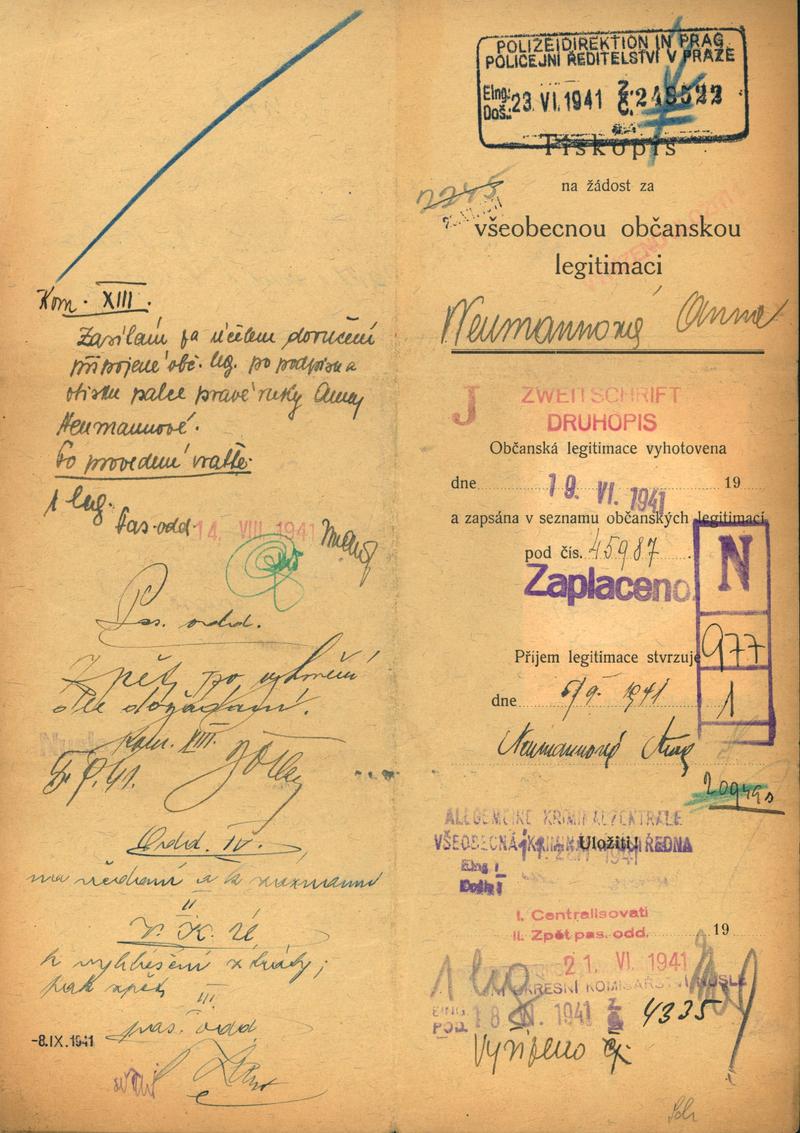 Kom. XIII.
Zasílám za účelem doručení
připojené obč. leg. po podpisu a
otisku palce pravé ruky Anny
Neumannové.
Po provedení vraťte.
1 leg.
Pas. odd. 14. VIII 1941
Pas. odd.
Zpět po vyřízení
dle dožádání.
Kom. XIII.
5/9.41.
Odd. IV.
na vědomí a k záznamu
II
V. K. Ú.
k vyhlášení ztráty;
pak zpět
III
pas. odd.
-8.IX.1941
POLIZEIDIREKTION IN PRAG
POLICEJNÍ ŘEDITELSTVÍ V PRAZE
Eing.:
Doš.: 23. VI. 1941 Z. Č. 248522
Tiskopis
2245
na žádost za
všeobecnou občanskou
legitimaci
Neumannová Anna
J ZWEITSCHRIFT
DRUHOPIS
Občanská legitimace vyhotovena
dne 19. VI. 1941 19
a zapsána v seznamu občanských legitimací
pod čís. 45987
Zaplaceno
N
977
1
Příjem legitimace stvrzuje
dne 5/9. 1941
Neumannová Anna
ALLGEMEINE KRIMINALZENTRALE
VŠEOBECNÁ KRIMINÁLNÍ ÚSTŘEDNA
Uložiti!
11. ZÁŘÍ 1941
Eing.:
Došlo:
I. Centralisovati
II. Zpět pas. odd.
19
1 leg
21. VI. 1941
OKRESNÍ KOMISAŘSTVÍ NUSLE
EING.
POD. 18. VI. 1941 Z Č 4335
Vyřízeno čj.